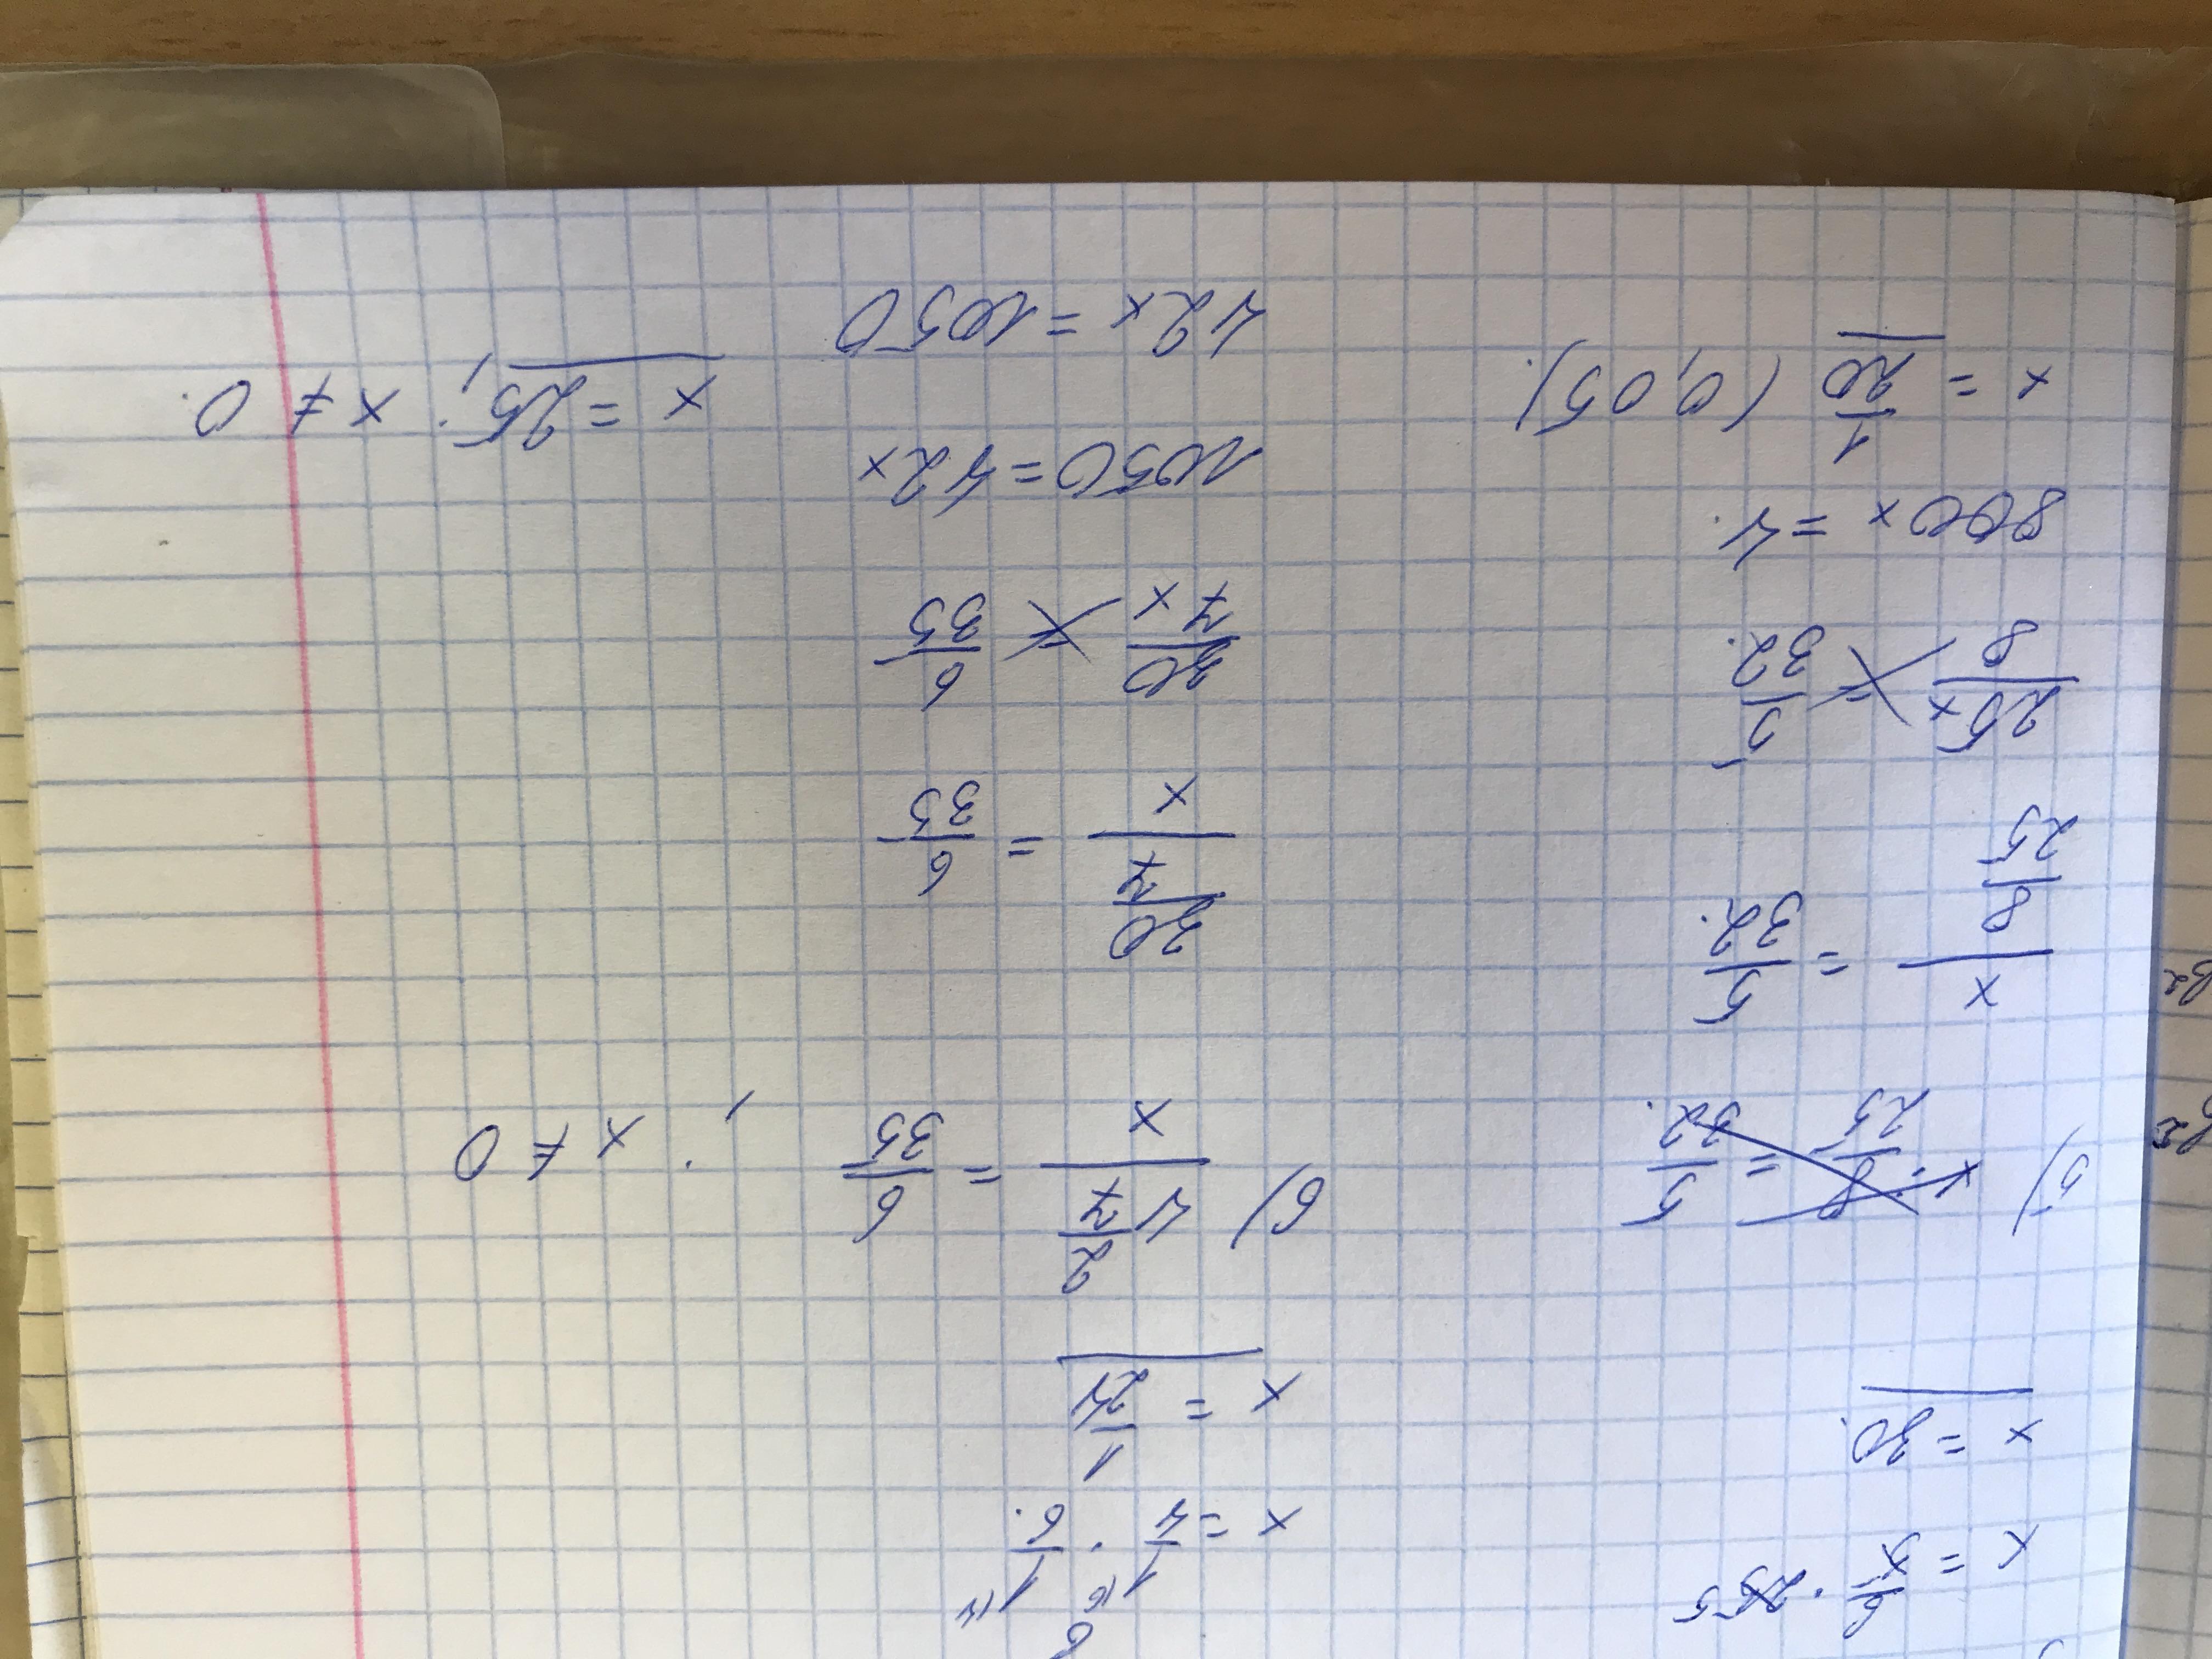 x = 6/5 · 25 5
x = 30.
5) x : 8/25 = 5/32.
x/(8/25) = 5/32.
25x/8 = 5/32.
800x = 4.
x = 1/20 (0,05).
x = 1/4 · 1/6.
x = 1/24
6) (4 2/7)/x = 6/35 ; x ≠ 0
(30/7)/x = 6/35
30/7x = 6/35
1050 = 42x
42x = 1050
x = 25; x ≠ 0.